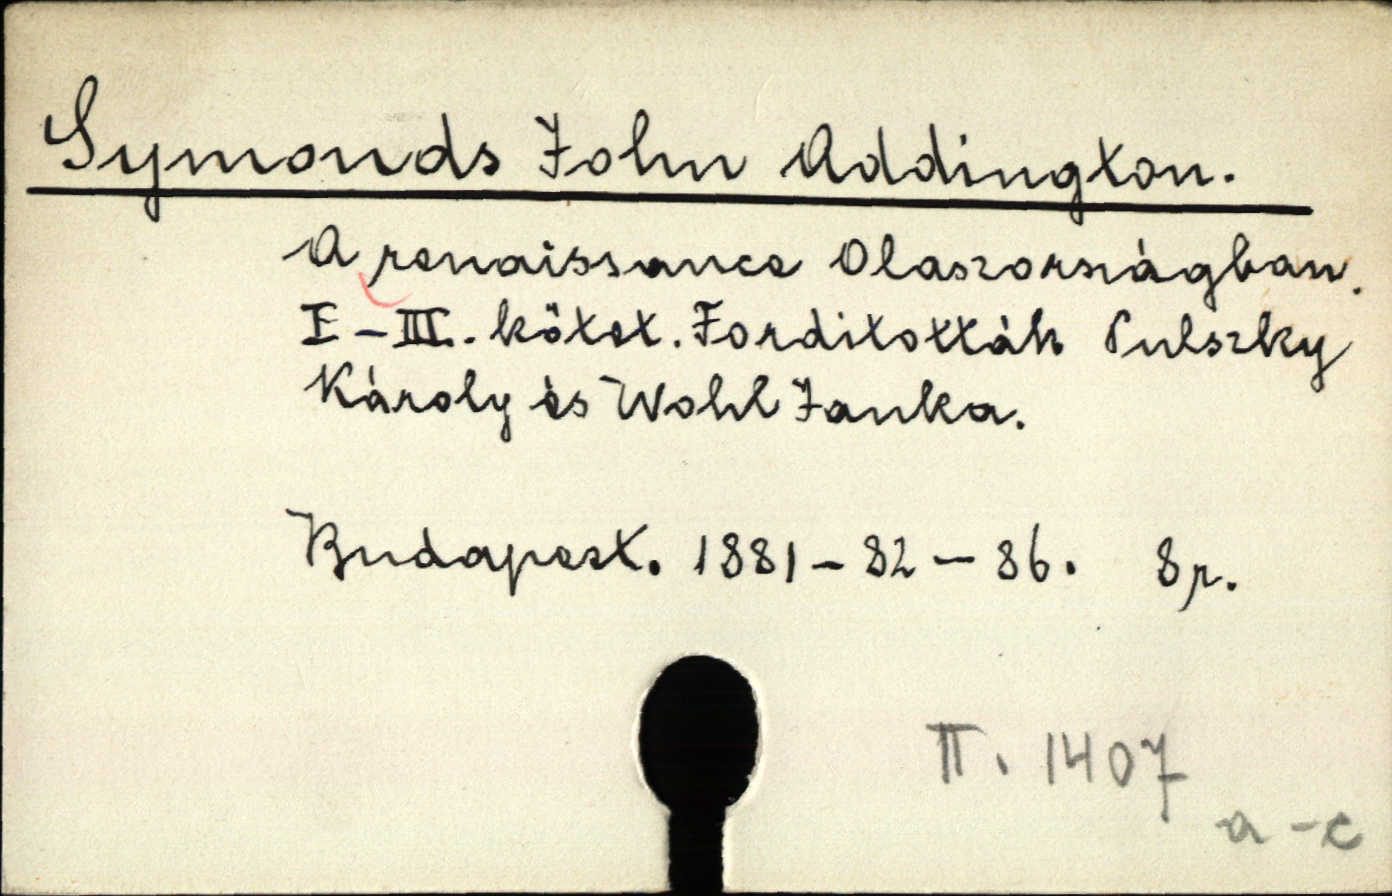 Symonds John Addington.
A renaissance Olaszországban.
I-III. kötet. Forditották Pulszky
Károly és Wohl Janka.
Budapest. 1881-82-86. 8r.
II. 1407
a-c